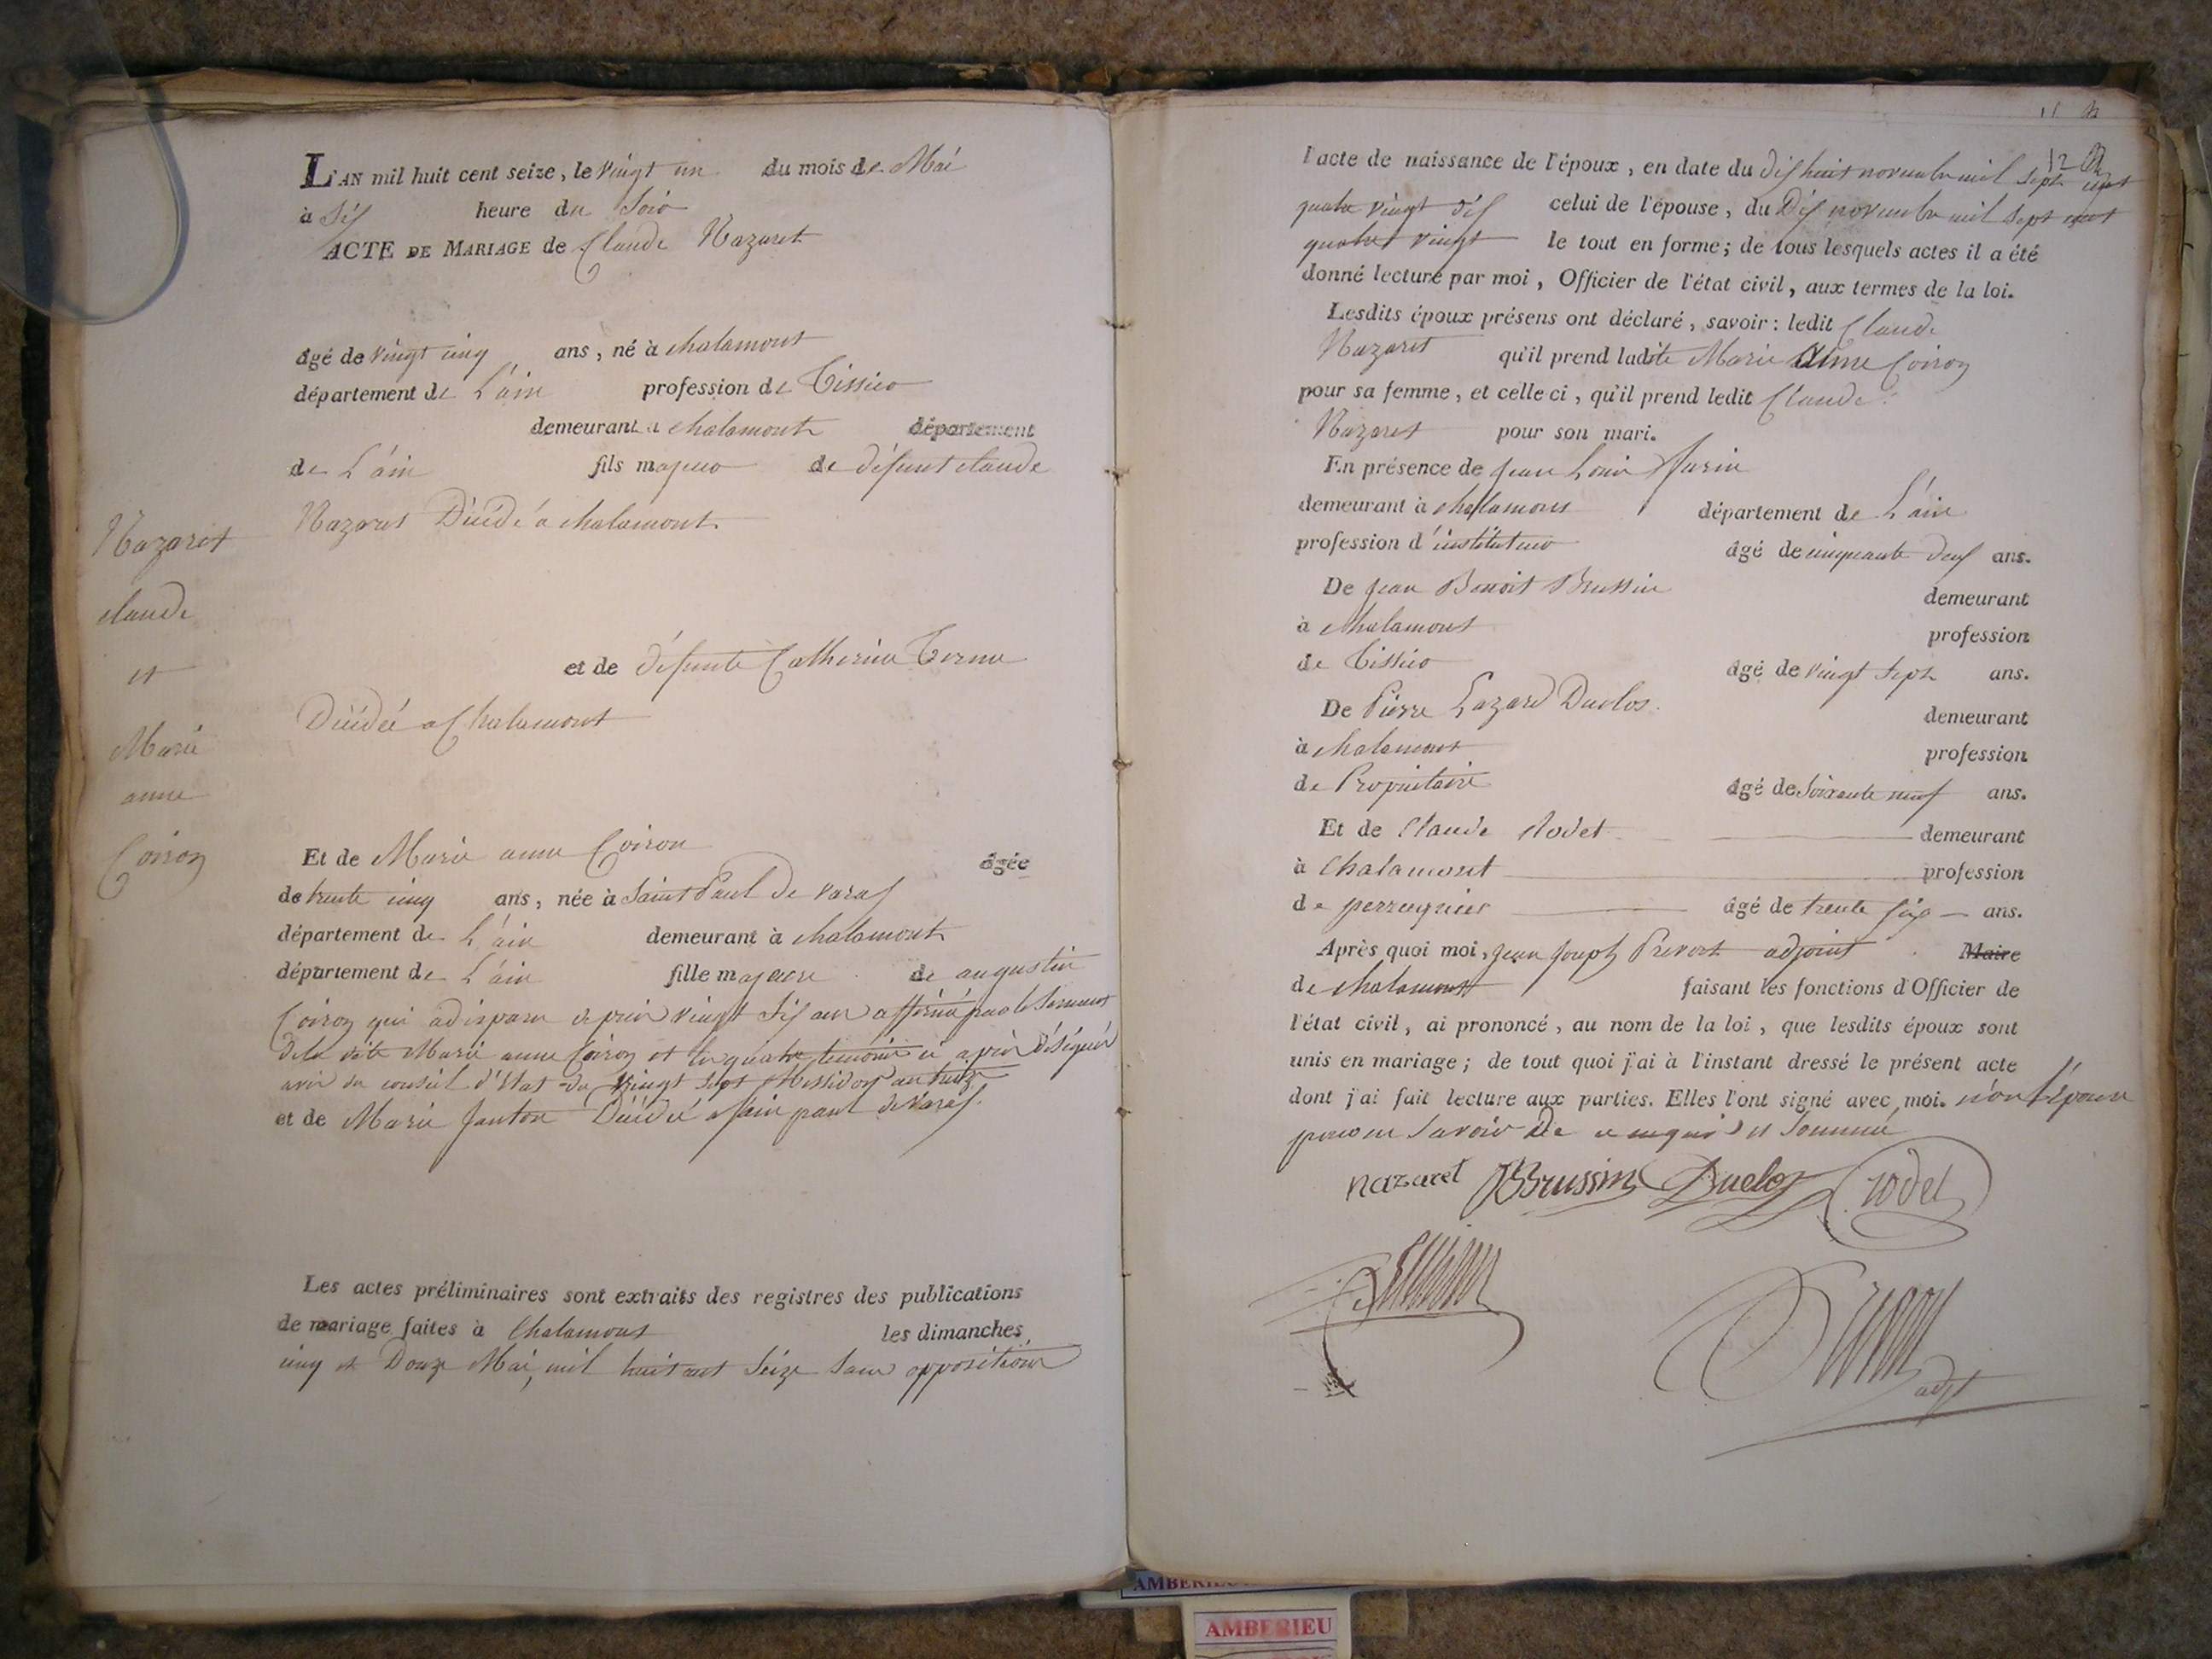 L'AN mil huit cent seize, le vingt un du mois de Mai
à Six heure du Soir
ACTE DE MARIAGE de Claude Nazaret
âgé de vingt cinq ans, né à chalamont
département de L'ain profession de Tissier
demeurant à chalamont département
de L'ain fils majeur de défunt claude
Nazaret Décédé a chalamont
et de défunte Catherine
Décédée a Chalamont
Nazaret
claude
et
Marie
anne
Coiron
Et de Marie anne Coiron âgée
de trente cinq ans, née à Saint Paul de varax
département de L'ain demeurant à chalamont
département de L'ain fille majeure de augustin
Coiron qui a disparu depuis vingt Six ans affirmé par le Serment
de la dite Marie anne Coiron et les quatre temoins ci après désignés
avis du conseil d'Etat du vingt sept Messidor an treize
et de Marie Janton Décédée a Sain paul de varax.
Les actes préliminaires sont extraits des registres des publications
de mariage faites à Chalamont les dimanches
cinq et Douze Mai, mil huit cent Seize Sans opposition
12
l'acte de naissance de l'époux, en date du dix huit novembre mil sept cent
quatre vingt dix celui de l'épouse, du Dix novembre mil sept cent
quatre vingt le tout en forme; de tous lesquels actes il a été
donné lecture par moi, Officier de l'état civil, aux termes de la loi.
Lesdits époux présens ont déclaré, savoir: ledit Claude
Nazaret qu'il prend ladite Marie Anne Coiron
pour sa femme, et celle ci, qu'il prend ledit Claude
Nazaret pour son mari.
En présence de Jean Louis
demeurant à chalamont département de L'ain
profession d'instituteur âgé de cinquante deux ans.
De Jean Benoit Brussin demeurant
à chalamont profession
de Tissier âgé de vingt sept ans.
De Pierre Lazard Duclos. demeurant
à chalamont profession
de Propriétaire âgé de Soixante neuf ans.
Et de Claude Rodet demeurant
à Chalamont profession
de perruquier âgé de trente six ans.
Après quoi moi, Jean Joseph Prevost adjoint Maire
de chalamont faisant les fonctions d'Officier de
l'état civil, ai prononcé, au nom de la loi, que lesdits époux sont
unis en mariage; de tout quoi j'ai à l'instant dressé le présent acte
dont j'ai fait lecture aux parties. Elles l'ont signé avec moi. non l'épouse
pour ne Savoir De ce enquis et Sommé
nazaret JBBrussin Duclos rodet
adjt
AMBERIEU
AMBERIEU